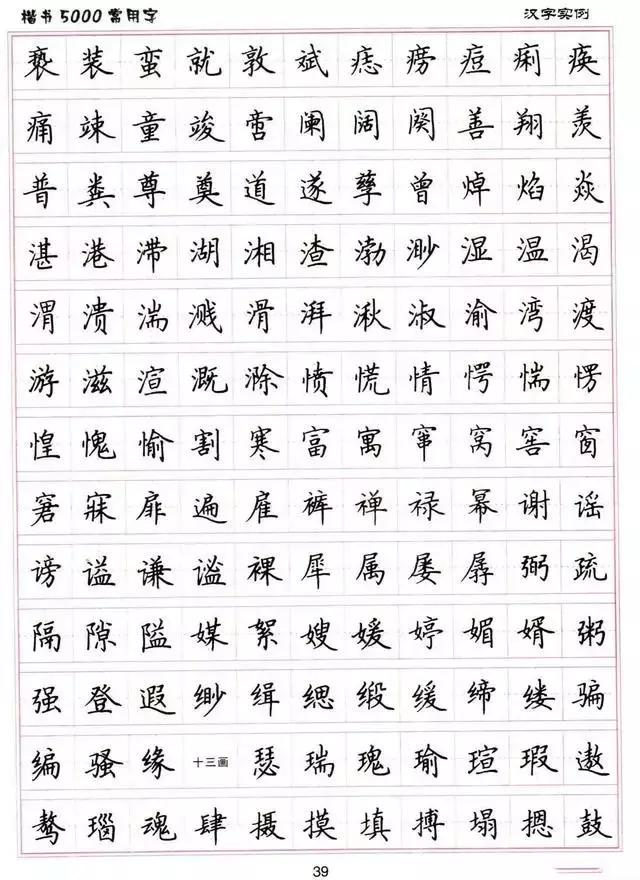 楷书5000常用字 汉字实例
亵 装 蛮 就 敦 斌 痣 痨 痘 痢 痪
痛 竦 童 竣 啻 阑 阔 阕 善 翔 羡
普 粪 尊 奠 道 遂 孳 曾 焯 焰 焱
湛 港 滞 湖 湘 渣 渤 渺 湿 温 渴
渭 溃 湍 溅 滑 湃 湫 淑 渝 湾 渡
游 滋 渲 溉 滁 愤 慌 情 愕 惴 愣
惶 愧 愉 割 寒 富 寓 窜 窝 窖 窗
窘 寐 扉 遍 雇 裤 禅 禄 幂 谢 谣
谤 谥 谦 谧 裸 犀 属 屡 孱 弼 疏
隔 隙 隘 媒 絮 嫂 媛 婷 媚 婿 粥
强 登 遐 缈 缉 缌 缎 缓 缔 缕 骗
编 骚 缘 十三画 瑟 瑞 瑰 瑜 瑄 瑕 遨
骜 瑙 魂 肆 摄 摸 填 搏 塌 摁 鼓
39